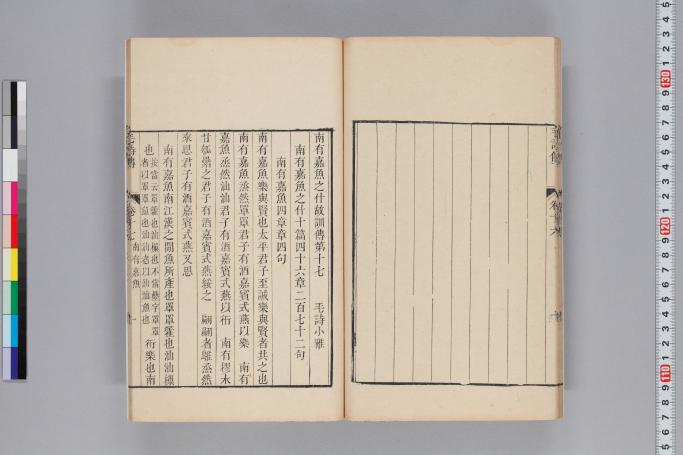 南有嘉魚之什故訓傳第十七　毛詩小雅
南有嘉魚之什十篇四十六章二百七十二句
南有嘉魚四章章四句
南有嘉魚樂與賢也太平君子至誠樂與賢者共之也
南有嘉魚烝然罩罩君子有酒嘉賓式燕以樂　南有
嘉魚烝然汕汕君子有酒嘉賓式燕以衎　南有樛木
甘瓠纍之君子有酒嘉賓式燕綏之　翩翩者鵻烝然
來思君子有酒嘉賓式燕又思
南有嘉魚南江漢之閒魚所產也罩罩籗也汕汕樔
也
衎樂也南
南有嘉魚
毛詩傳